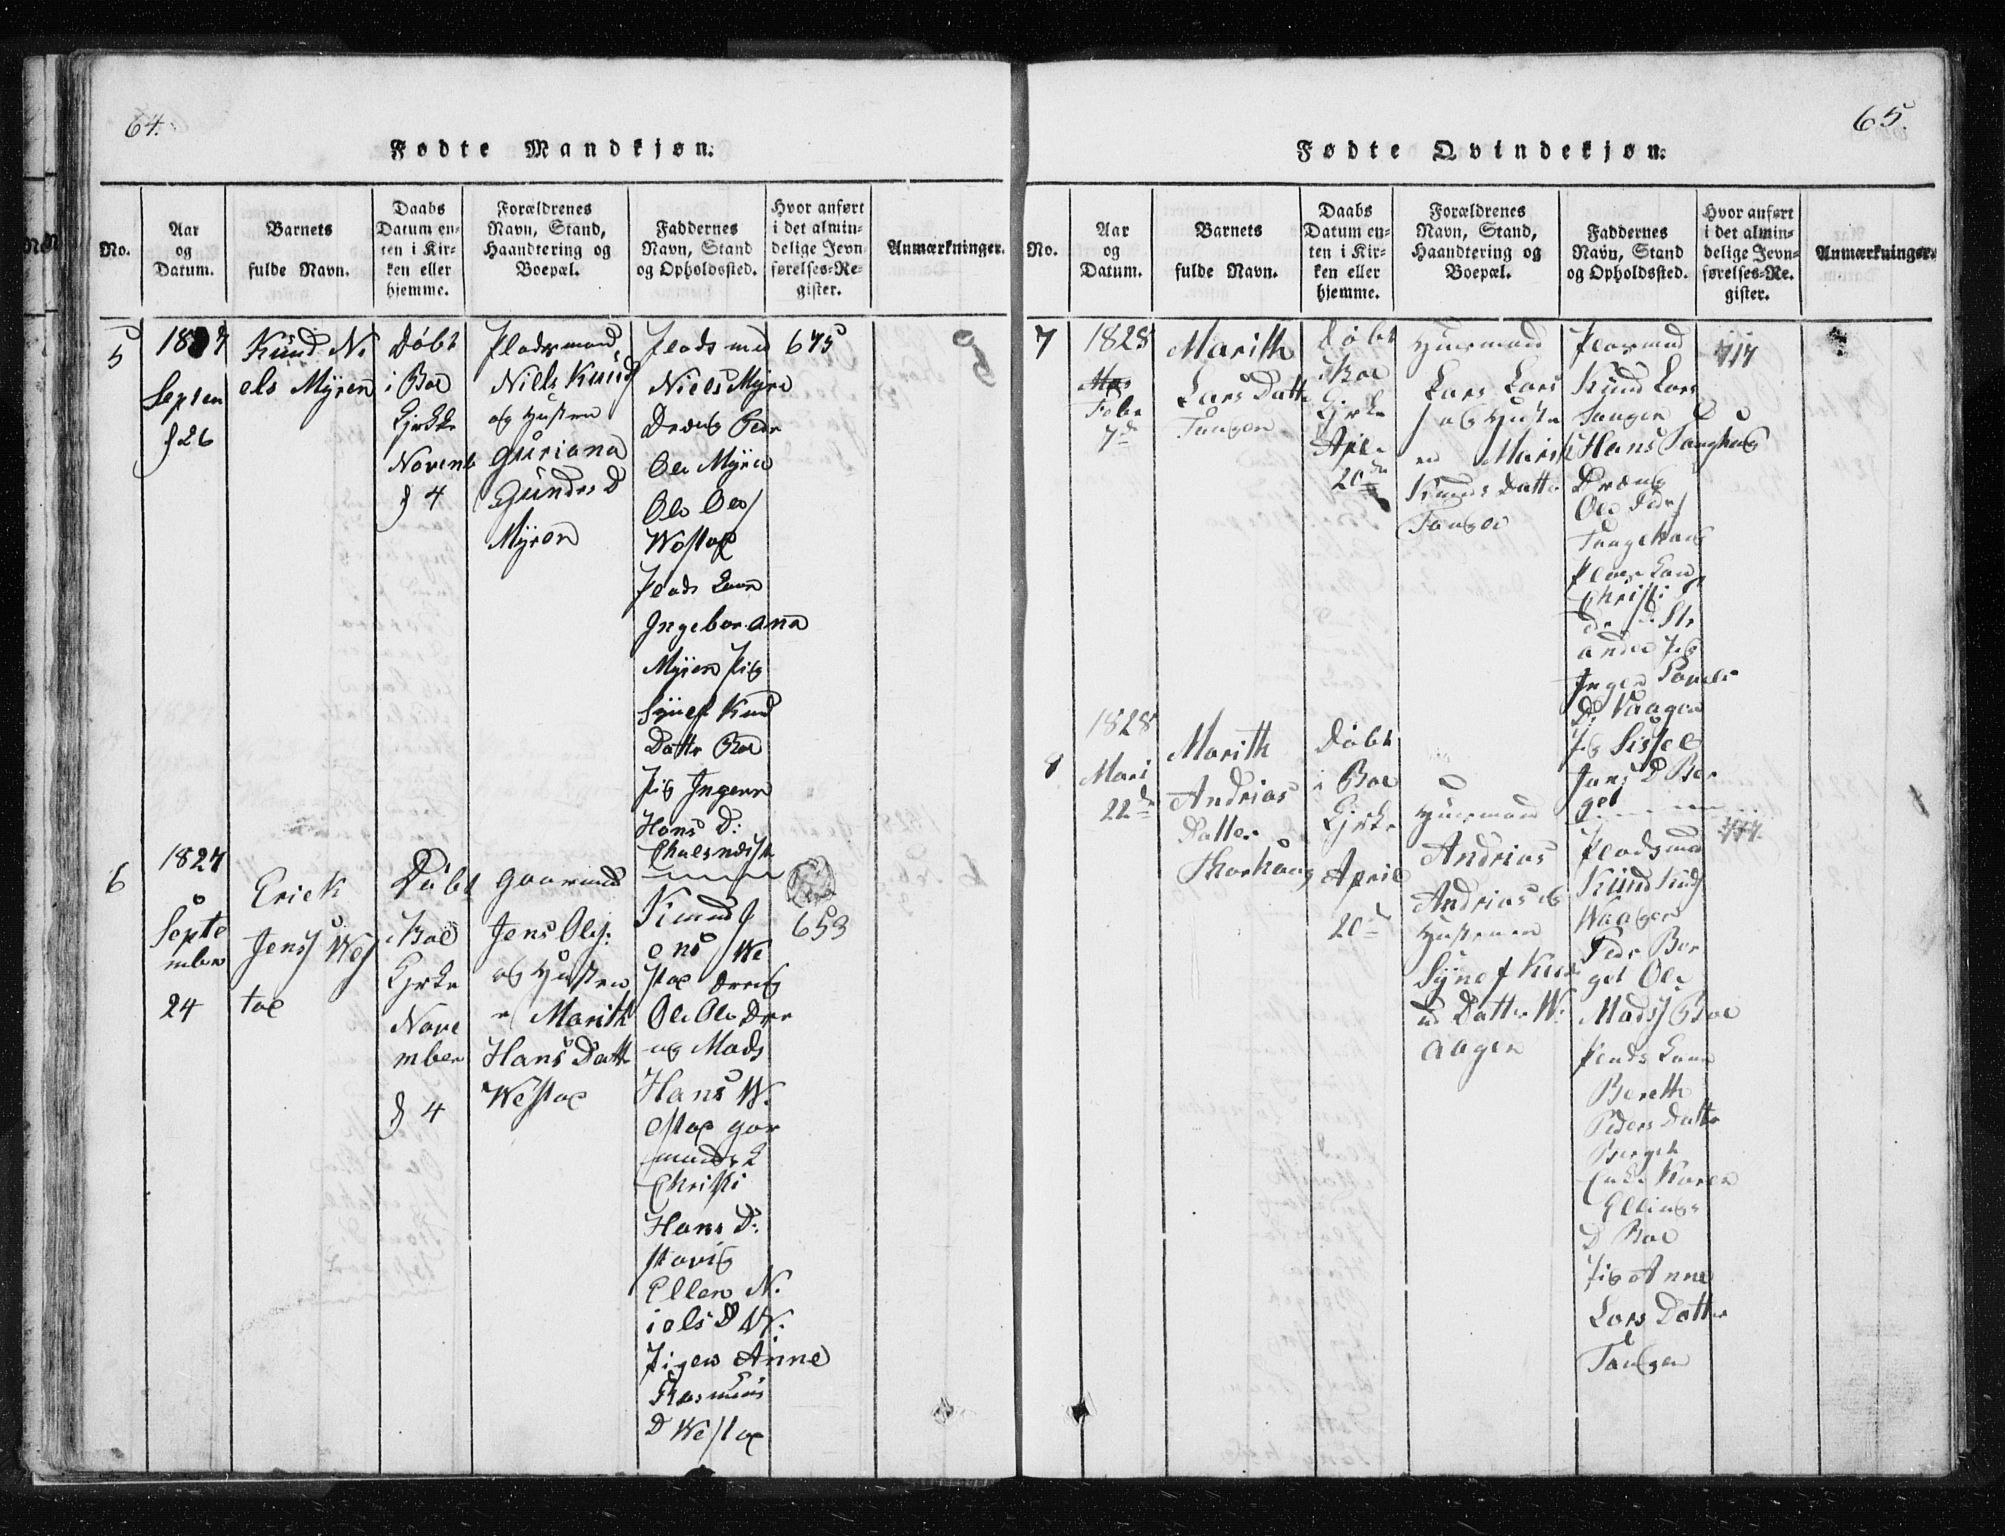 64.
Fødte Mandkjøn.
No.
Aar
og
Datum.
Barnets
fulde Navn.
Daabs
Datum en-
ten i Kir-
ken eller
hjemme.
Forældrenes
Navn, Stand,
Haandtering og
Boepæl.
Faddernes
Navn, Stand
og Opholdssted.
Hvor anført
i det almin-
delige Jevn-
førelses-Re-
gister.
Anmærkninger.
5
Septem
26
Knud Ni
els Myren
Døbt
i Boe
Kirke
Novemb
4
Pladsmand
Niels Knuds
og Hustru
Guriana
Gunders D
Myren
Plads md
Niels Myre
Dreng Peder
Ole Myren
Ole Ols
Westae
Plads
Ingebor Anna
Myren Pig
Synef Knud
Datte Boe
Pig Ingener
Hans D:
675
6
1827
Septe
mber
24
Erick
Jens Wes
tae
Døbt
i Boe
Kirke
Nove
mber
4
Gaarmd
Jens Ols:
og Hustru
Marith
Hans Datt
Westae
Knud J
ens We
stae Dreng
Ole Ole Dre
ng Mads
Hans W.
estae gar
Christi
Hans D:
stavig
Ellen N.
iels D W.
Pigen Anne
Rasmus
D Westae
653
65.
Fødte Qvindekjøn.
No.
Aar
og
Datum.
Barnets
fulde Navn.
Daabs
Datum en-
ten i Kir-
ken eller
hjemme.
Forældrenes
Navn, Stand,
Haandtering og
Boepæl.
Faddernes
Navn, Stand
og Opholdssted.
Hvor anført
i det almin-
delige Jevn-
førelses-Re-
gister.
Anmærkninger.
7
1828
Febr
7de
Marith
Lars Datte
Tangen
Døbt
i Boe
Kirke
Apl.
20de
Huusmand
Lars Lars
og Hustr
en Marit
Knuds Datte
Tangen
Knud Lars
Tangen
Hans Tanghaug
Dreng
Ole Peders
Tangehaug
Christi
ande Pig
Inger Povels
D Vaagen
Pig Sissel
Jens D Ber
get
717
8
1828
Marti
22de
Marith
Andrias
Datter
Thorhaug
Døbt
i Boe
Kirke
April
20de
Huusmand
Andrias
Andrias og
Hustruen
Synef Knu
d Datte W.
aagen
Pladsmd
Knud Knuds
Waagen
Peder Ber
get Ole
Mads Boe
Plads
Bereth
Peders Datte
Berget
Karen
Ellings
D Boe
Pig Anne
Lars Datte
Tangen